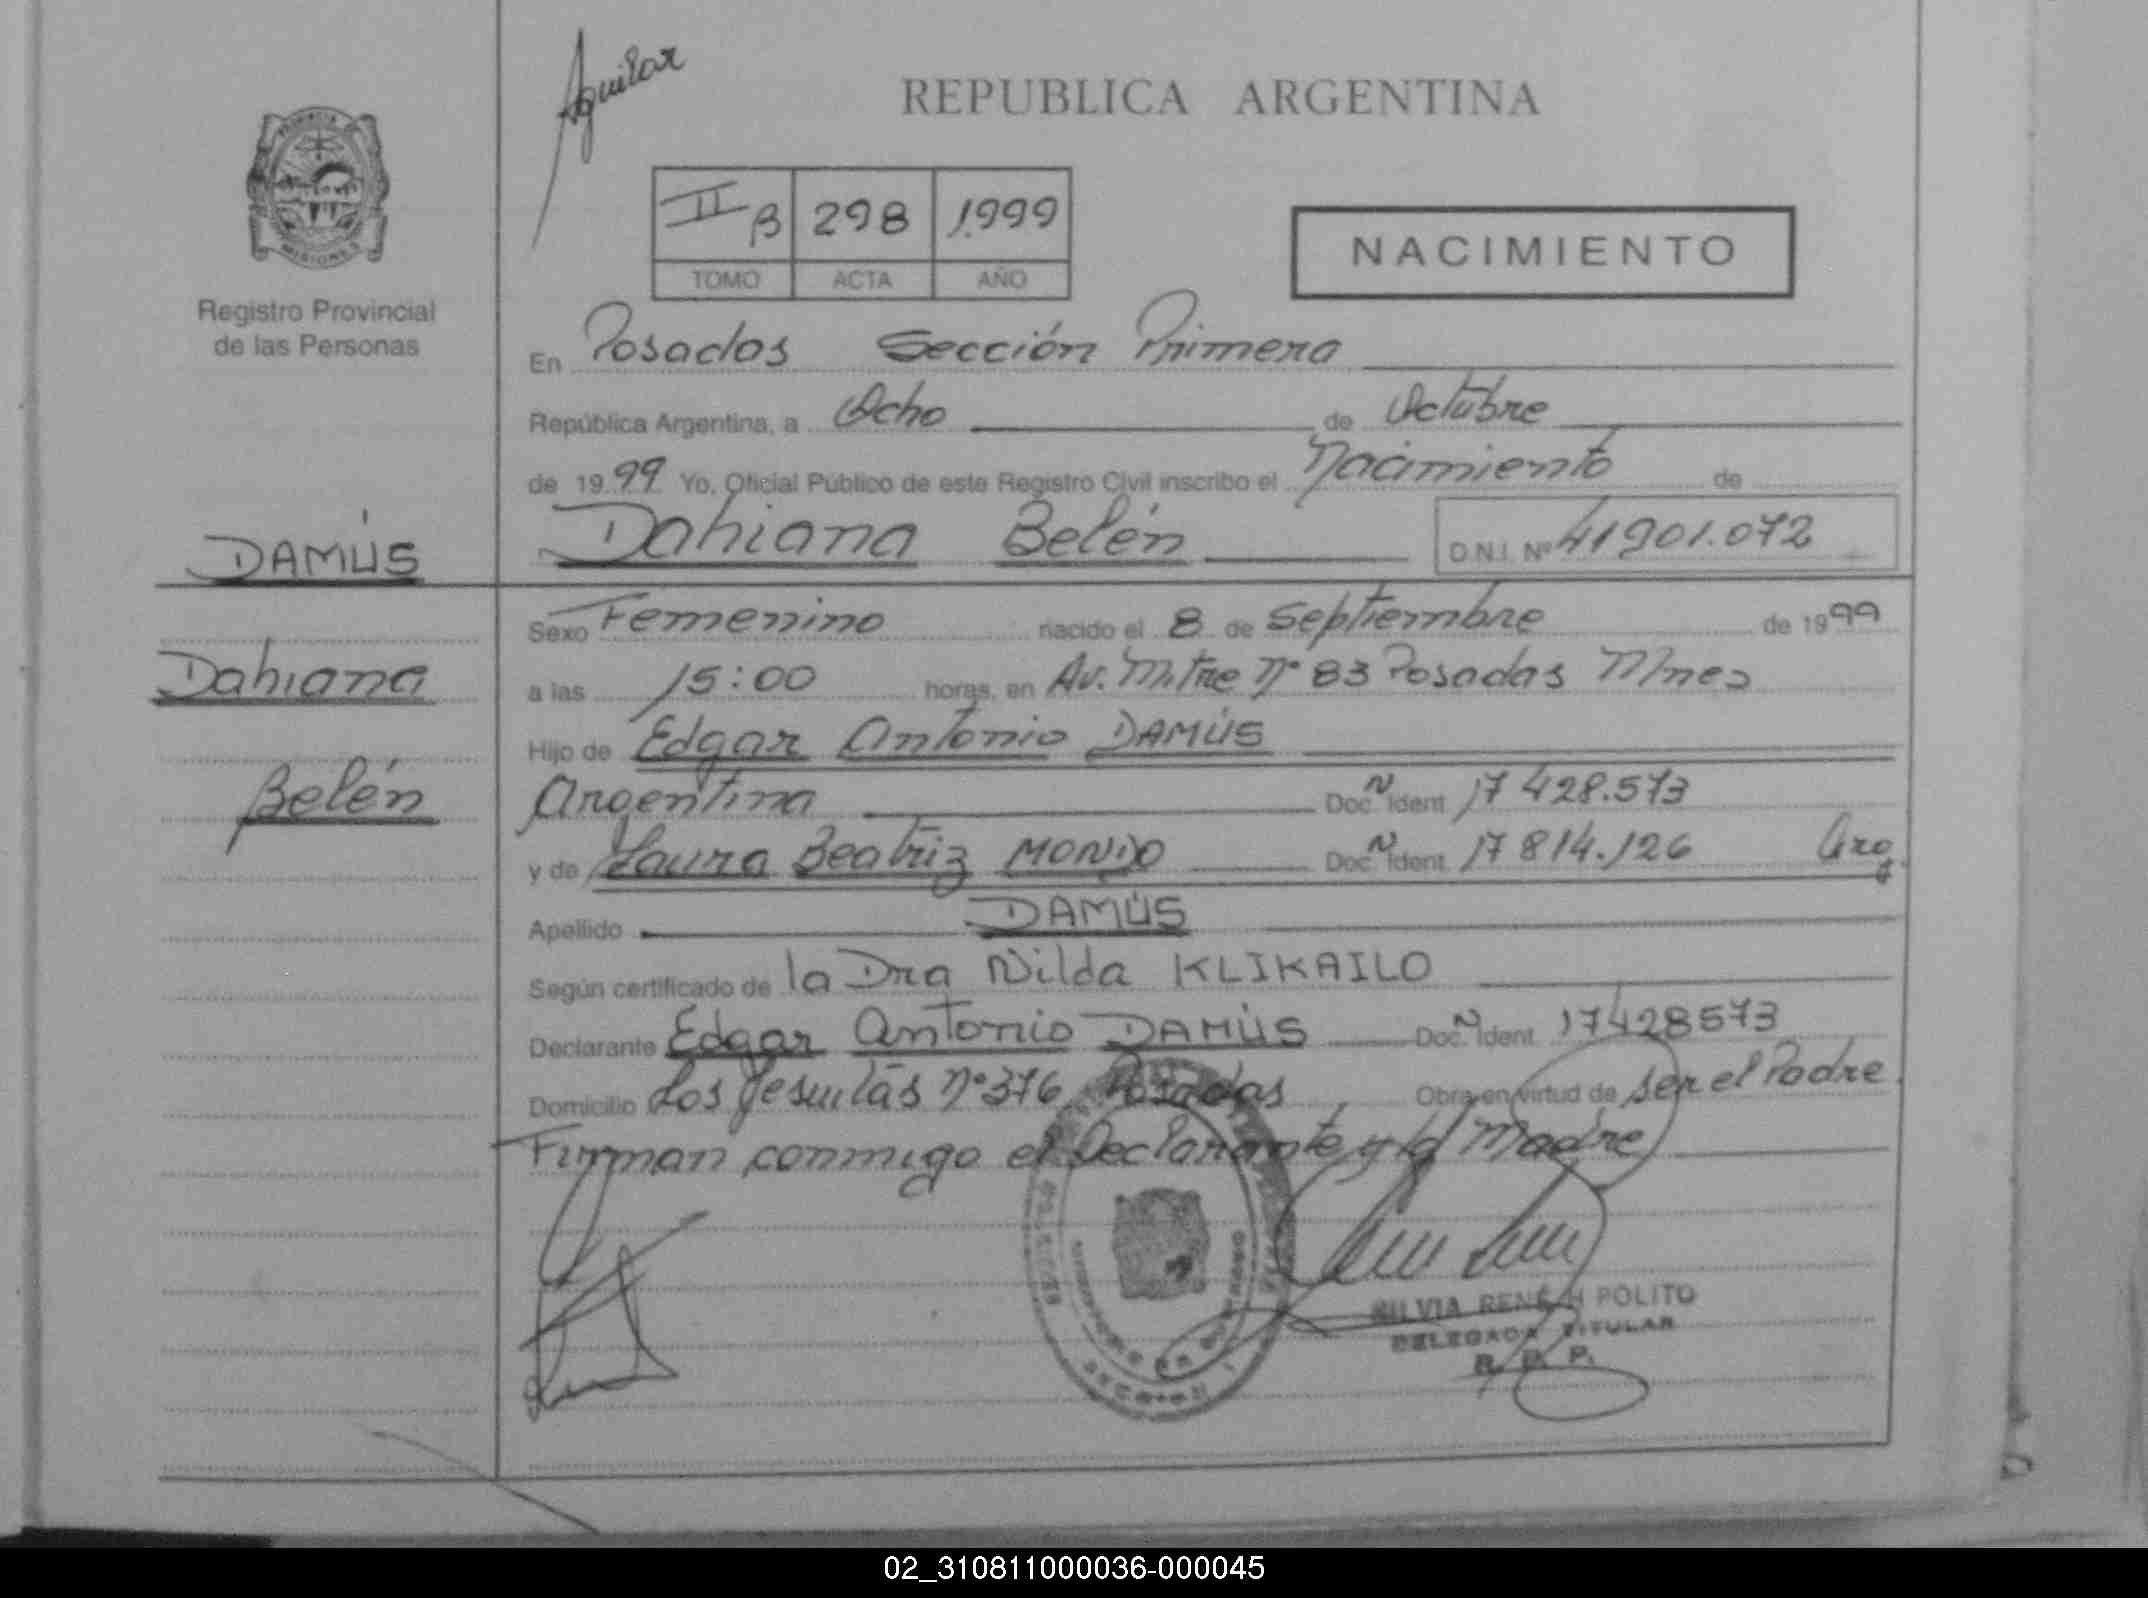 Aguilar
REPUBLICA ARGENTINA
II B 298 1.999
TOMO ACTA AÑO
NACIMIENTO
PROVINCIA DE
MISIONES
Registro Provincial
de las Personas
En Posadas Sección Primera
República Argentina, a Ocho de Octubre
de 1999 Yo, Oficial Público de este Registro Civil inscribo el Nacimiento de
DAMÚS
Dahiana Belén
D.N.I. Nº 41901.072
Sexo Femenino nacido el 8 de Septiembre de 1999
Dahiana
a las 15:00 horas, en Av. Mitre Nº 83 Posadas Mnes
Hijo de Edgar Antonio DAMÚS
Belén
Argentina Doc. N Ident 17 428.573
y de Laura Beatriz MONDO Doc. N Ident. 17 814.126 Arg.
Apellido DAMÚS
Según certificado de la Dra Nilda KLIKAILO
Declarante Edgar Antonio DAMÚS Doc. N Ident 17428573
Domicilio Los Jesuitas Nº 376 Posadas Obra en virtud de ser el Padre
Firman conmigo el Declarante y la Madre
SILVIA RENÉ H POLITO
DELEGADA TITULAR
R. P. P.
02_310811000036-000045